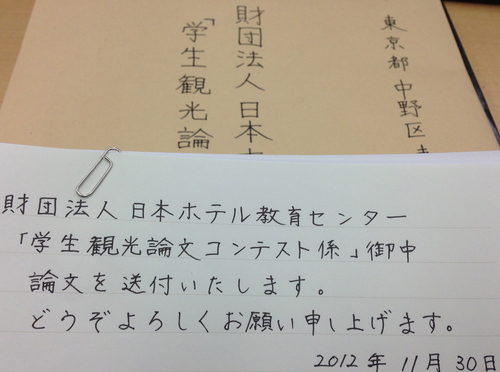 東京都中野区
財団法人日本
「学生観光論
財団法人日本ホテル教育センター
「学生観光論文コンテスト係」御中
論文を送付いたします。
どうぞよろしくお願い申し上げます。
2012年11月30日